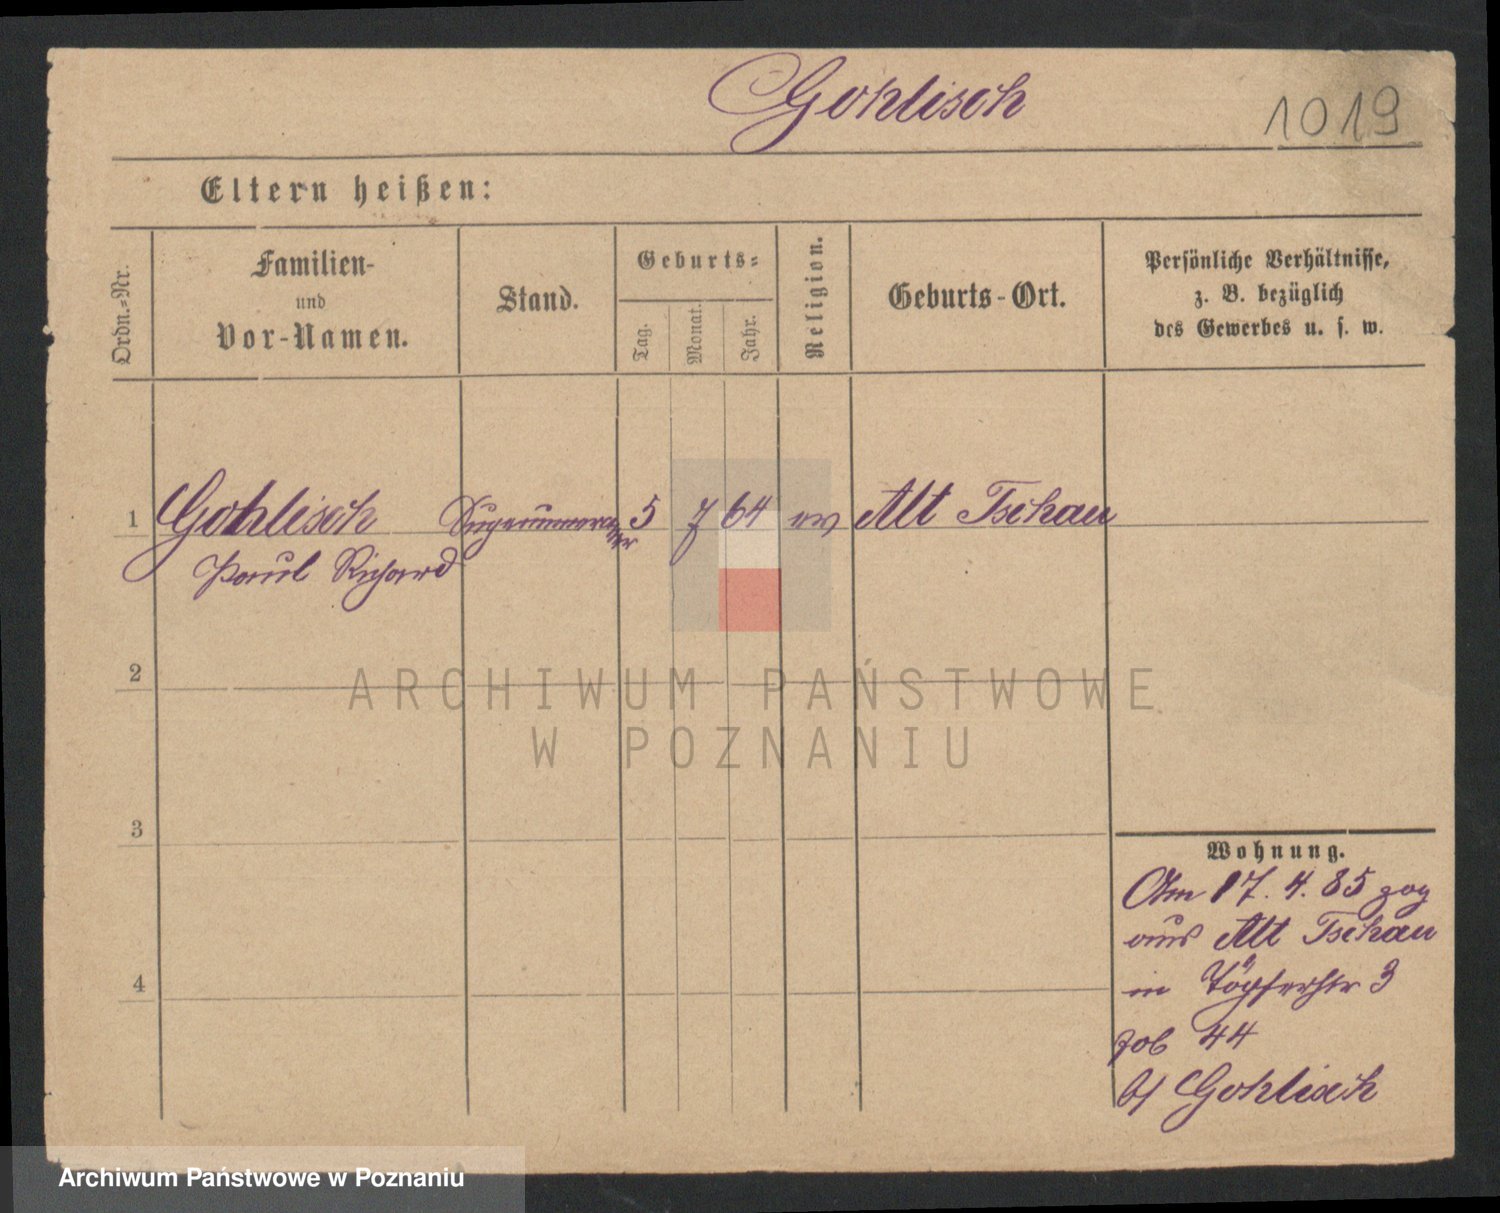 Gohlisch
1019
Eltern heißen:
Ordn.=Nr.
Familien-
und
Vor-Namen.
Stand.
Geburts=
Tag.
Monat.
Jahr.
Religion.
Geburts-Ort.
Persönliche Verhältnisse,
z. B. bezüglich
des Gewerbes u. s. w.
1 Gohlisch 5 7 64 ev Alt Tschau
Paul Richard
2
ARCHIWUM PAŃSTWOWE
W POZNANIU
3
Wohnung.
Am 17. 4. 85 zog
aus Alt Tschau
in Töpferstr 3
4
44
b/ Gohlisch
Archiwum Państwowe w Poznaniu